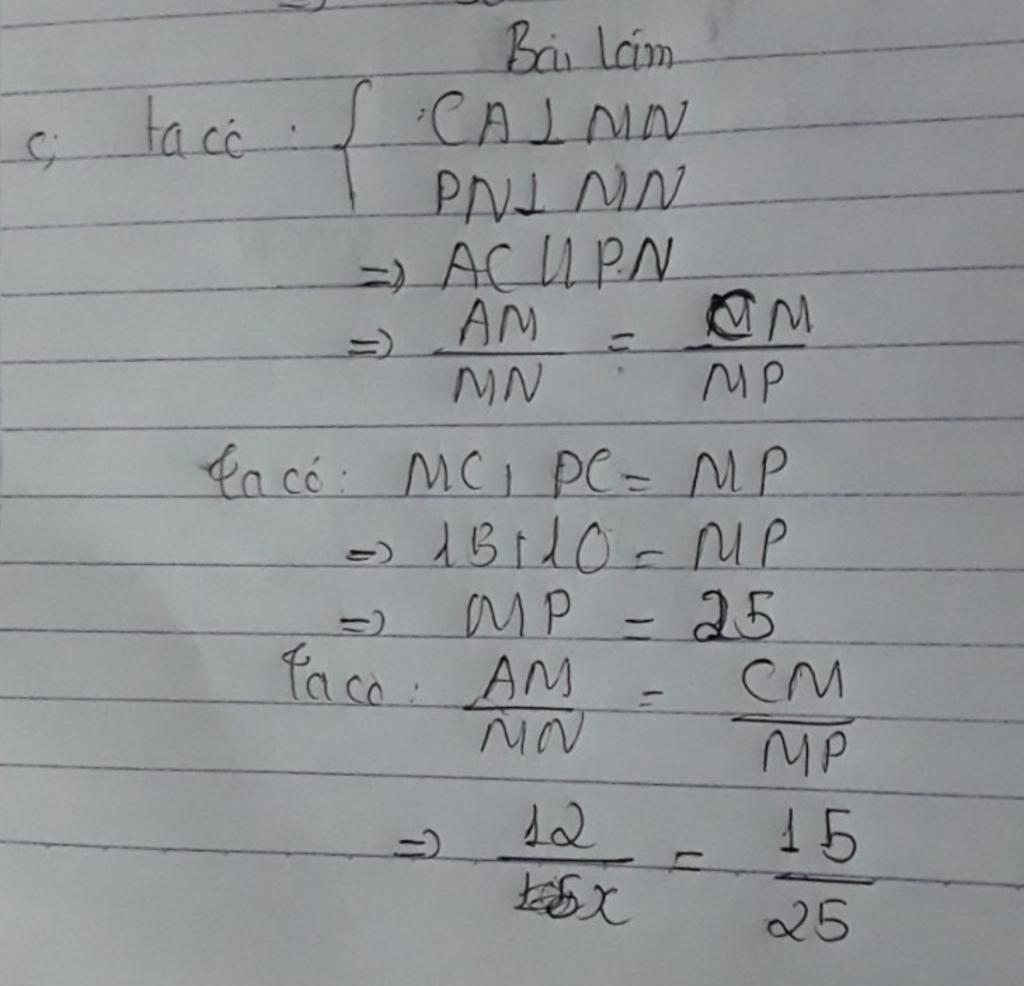 Bài làm
c, ta có : { CA ⊥ MN
PN ⊥ MN
=> AC // PN
=> AM/MN = CM/MP
ta có: MC + PC = MP
=> 15 + 10 = MP
=> MP = 25
Ta có: AM/MN = CM/MP
=> 12/x = 15/25